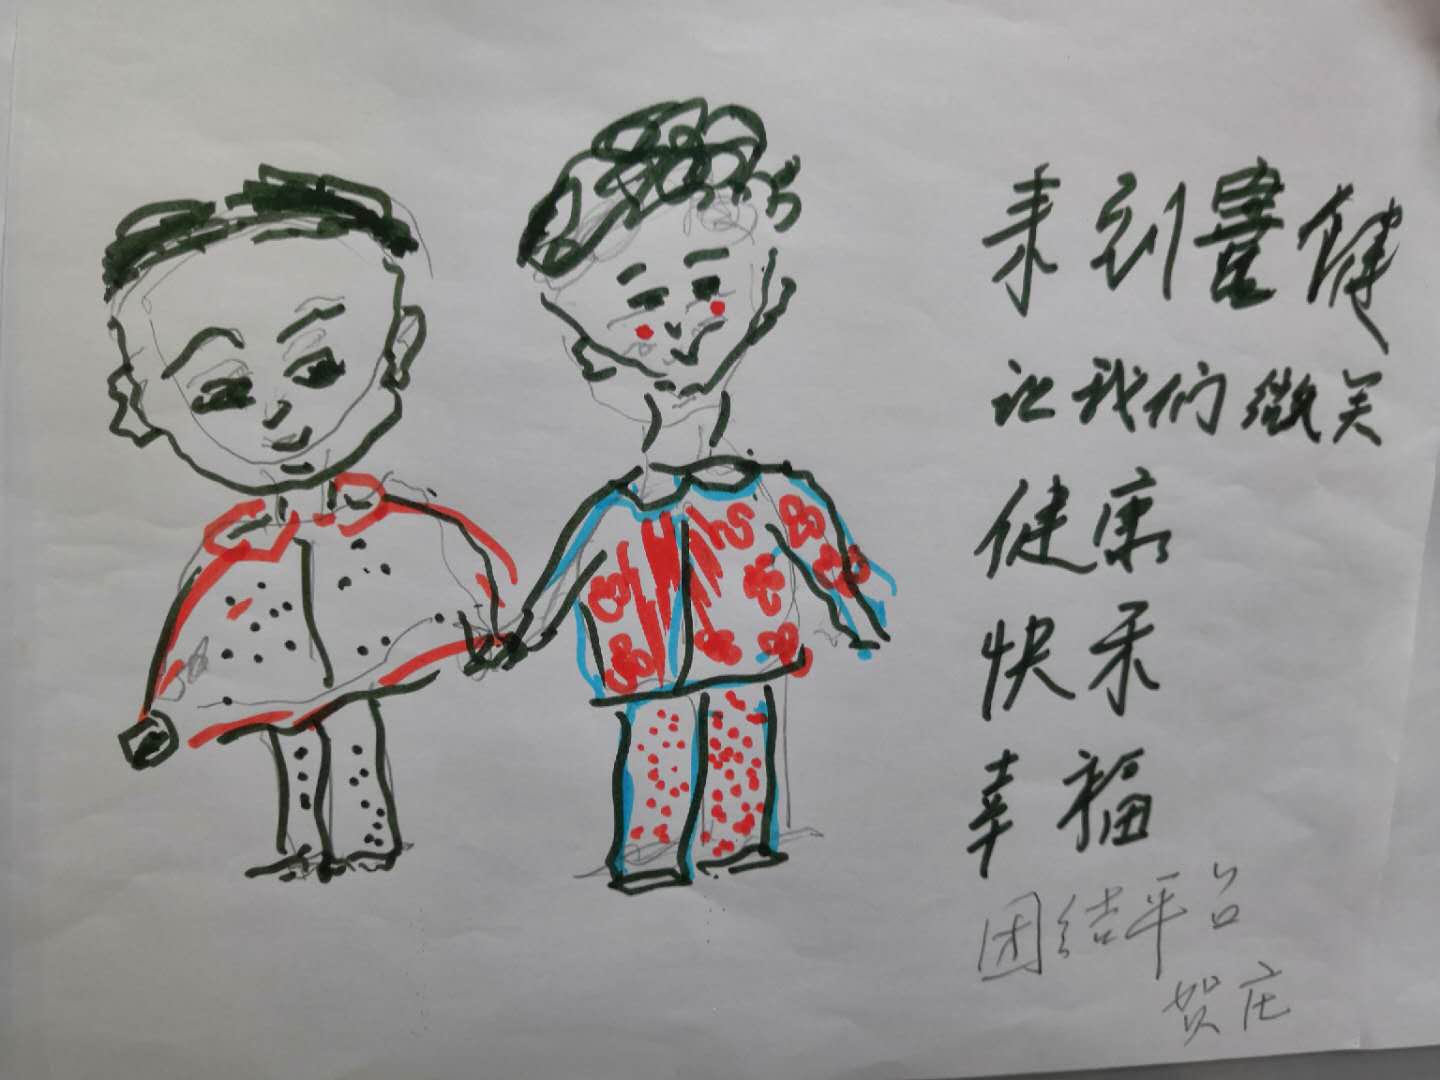 来到喜健
让我们微笑
健康
快乐
幸福
团结平台
贺庄